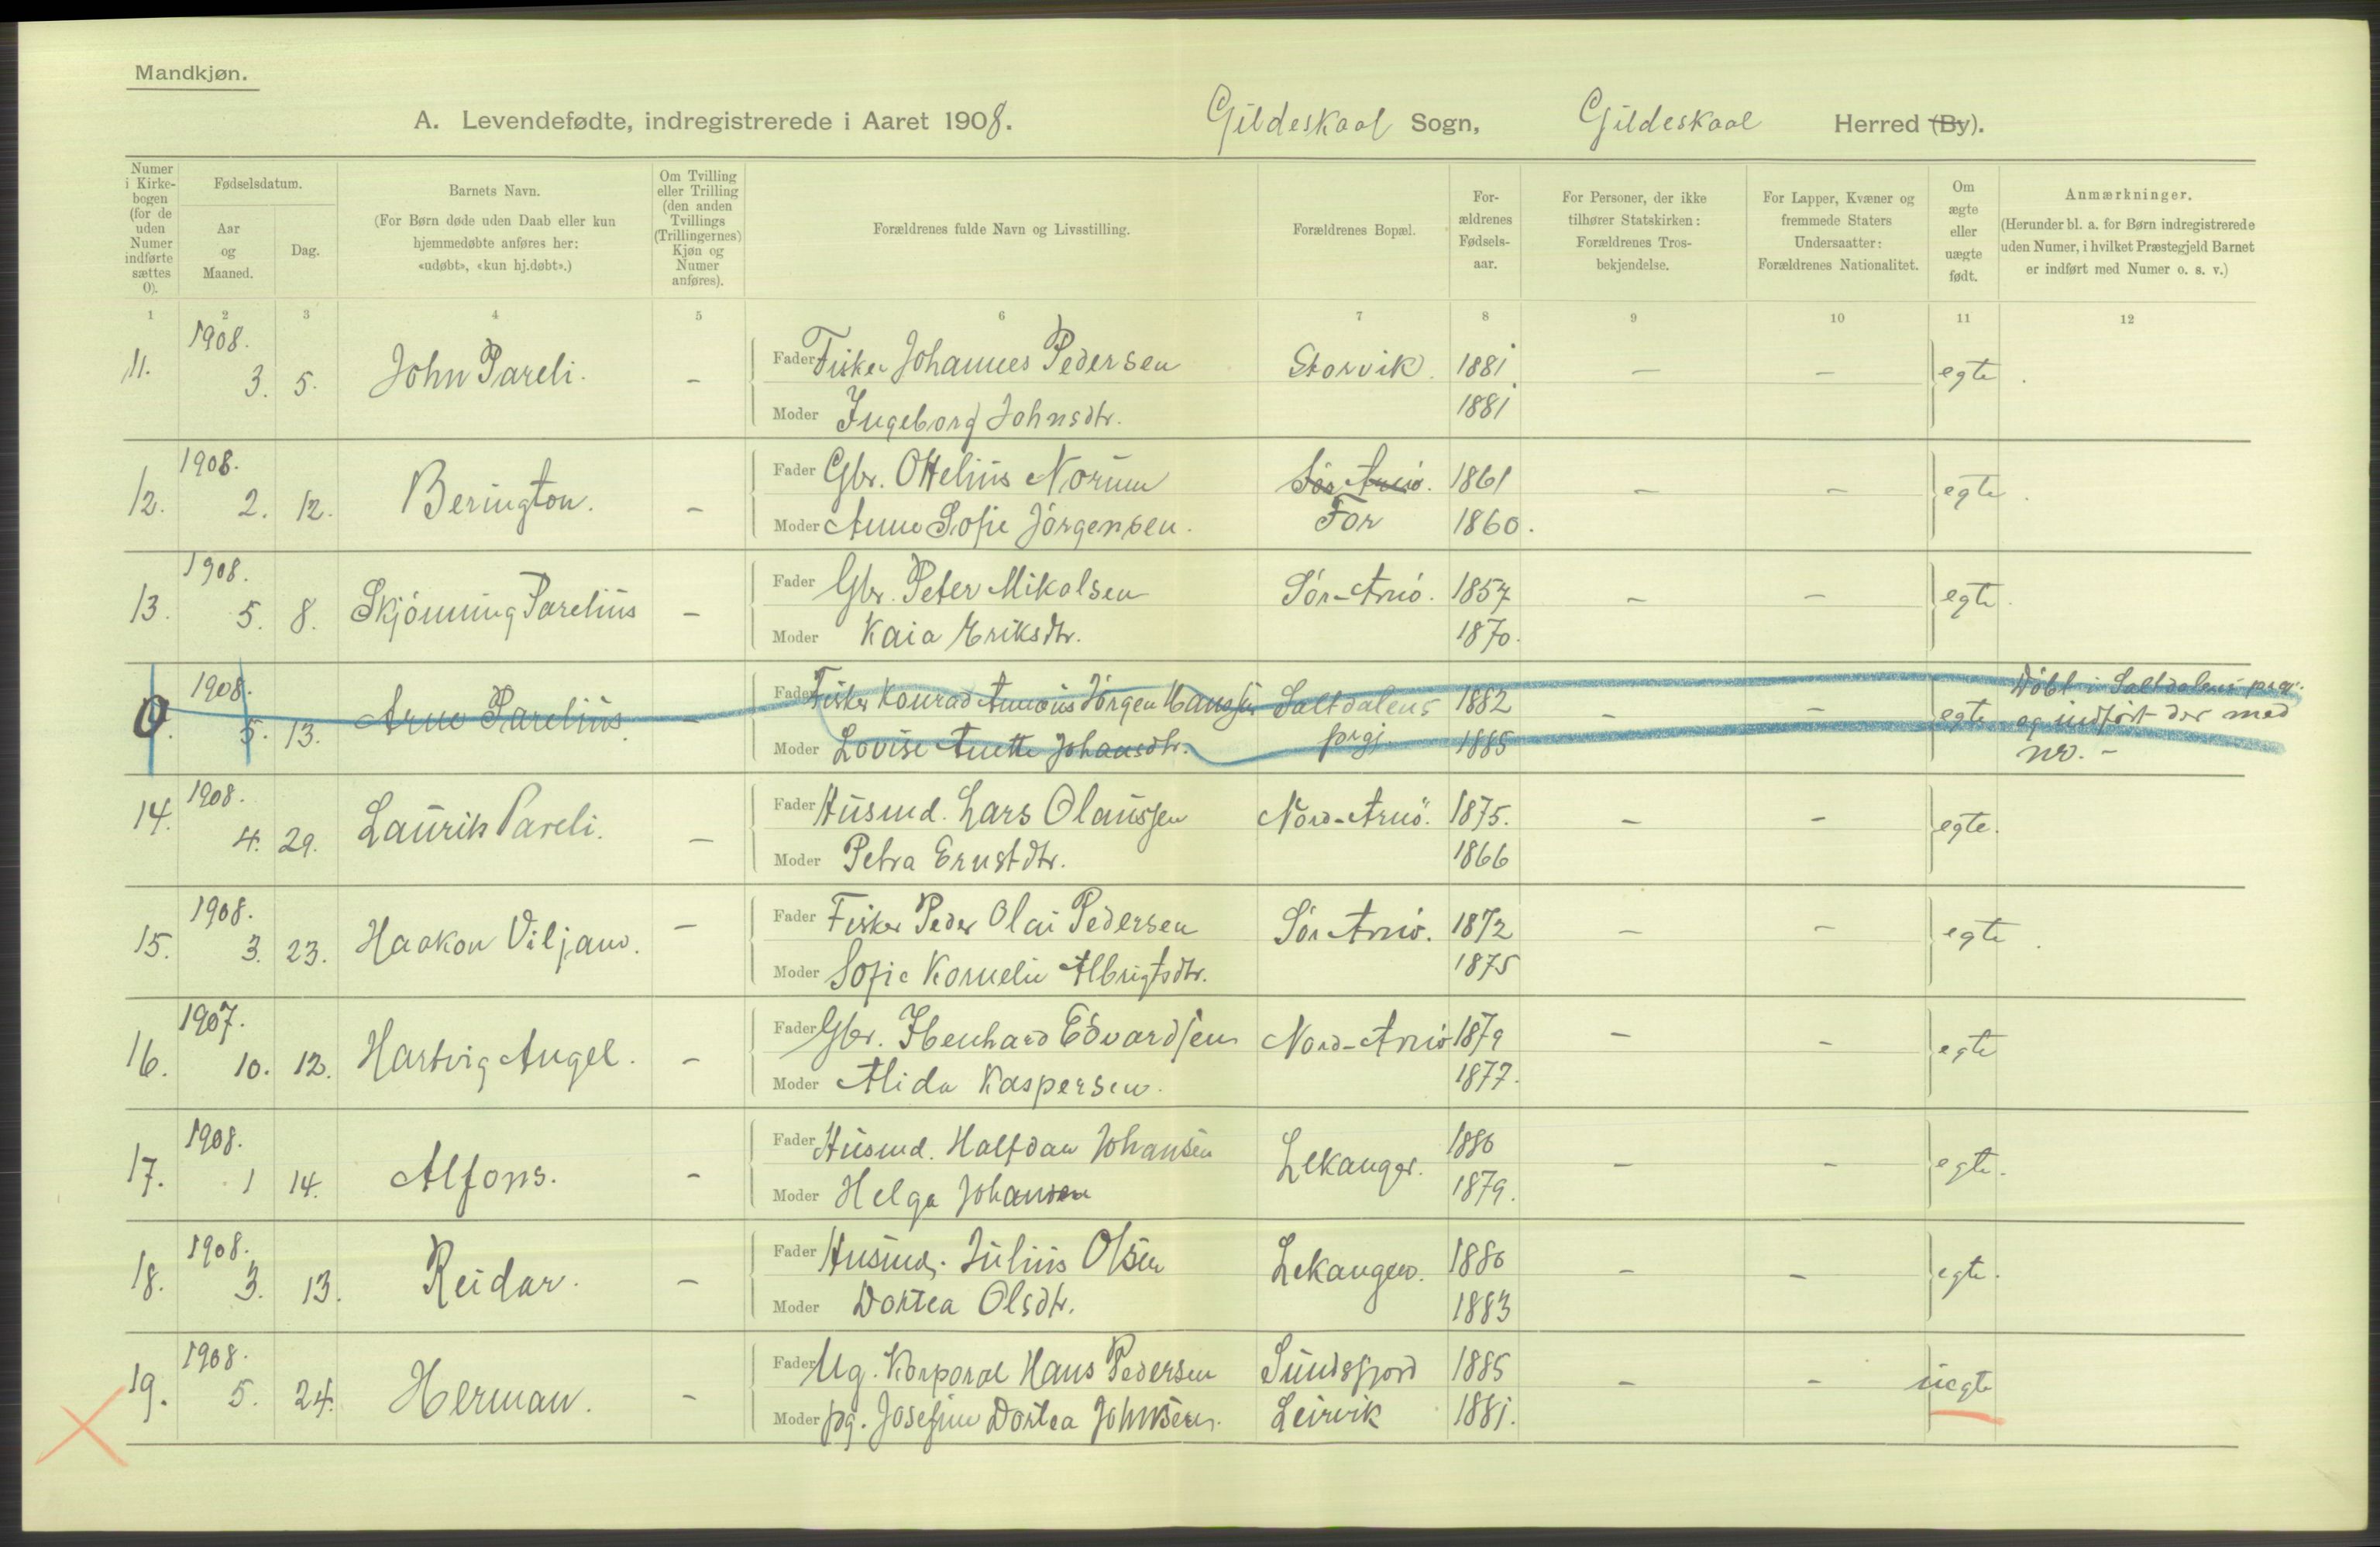 Mandkjøn.
A. Levendefødte, indregistrerede i Aaret 1908. Gildeskaal Sogn, Gildeskaal Herred (By).
Numer i Kirke-bogen (for de uden Numer indførte sættes 0).
Fødselsdatum.
Aar og Maaned.
Dag.
Barnets Navn.
(For Børn døde uden Daab eller kun hjemmedøbte anføres her: «udøbt», «kun hj.døbt».)
Om Tvilling eller Trilling (den anden Tvillings (Trillingernes) Kjøn og Numer anføres).
Forældrenes fulde Navn og Livsstilling.
Forældrenes Bopæl.
For-ældrenes Fødsels-aar.
For Personer, der ikke tilhører Statskirken: Forældrenes Tros-bekjendelse.
For Lapper, Kvæner og fremmede Staters Undersaatter: Forældrenes Nationalitet.
Om ægte eller uægte født.
Anmærkninger.
(Herunder bl. a. for Børn indregistrerede uden Numer, i hvilket Præstegjeld Barnet er indført med Numer o. s. v.)
1 2 3 4 5 6 7 8 9 10 11 12
11. 1908. 3. 5. John Pareli. - Fader Fisker Johannes Pedersen Storvik. 1881 - - egte.
Moder Ingeborg Johnsdtr. 1881
12. 1908. 2. 12. Berington. - Fader Gbr. Ottelius Norum Sör Arnö. 1861 - - egte.
Moder Anne Sofie Jörgensen. For 1860.
13. 1908. 5. 8. Skjönning Parelius - Fader Gbr. Peter Mikalsen Sör-Arnö. 1857 - - egte.
Moder Kaia Eriksdtr. 1870.
0. 1908. 5. 13. Arne Parelius. - Fader Fisker Konrad Jörgen Hanssen Saltdalens 1882 - - egte Döbt i Saltdalens prgj.
Moder Lovise Anette Johansdtr. prgj. 1885 og indfört der med
nr. -
14. 1908. 4. 29. Laurits Pareli. - Fader Husmd. Lars Olaussen Nord-Arnö. 1875. - - egte.
Moder Petra Ernstdtr. 1866
15. 1908. 3. 23. Haakon Viljam. - Fader Fisker Peder Olai Pedersen Sör Arnö. 1872 - - egte.
Moder Sofie Kornelie Albrigtsdtr. 1875
16. 1907. 10. 12. Hartvig Angel. - Fader Gbr. Ibenhard Edvardsen Nord-Arnö 1879 - - egte
Moder Alida Kaspersen. 1877.
17. 1908. 1 14. Alfons. - Fader Husmd. Halfdan Johansen Lekanger. 1880 - - egte.
Moder Helga Johansen 1879.
18. 1908. 3. 13. Reidar. - Fader Husmd. Julius Olsen Lekanger. 1880 - - egte.
Moder Dortea Olsdtr. 1883
19. 1908. 5. 24. Herman. - Fader Ug. Korporal Hans Pedersen Sundsfjord 1885 - - uegte
Moder pg. Josefine Dortea Johnsen. Leirvik 1881.